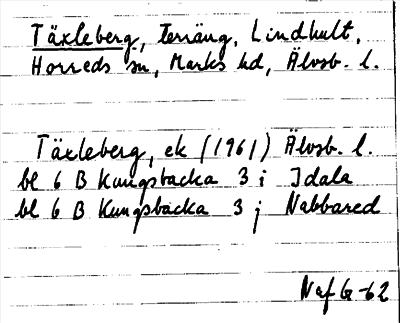 Täxleberg, terräng, Lindhult,
Horreds sn, Marks hd, Älvsb. l.
Täxleberg, ek (1961) Älvsb. l.
bl 6 B Kungsbacka 3 i Idala
bl 6 B Kungsbacka 3 j Nabbared
Naf G-62